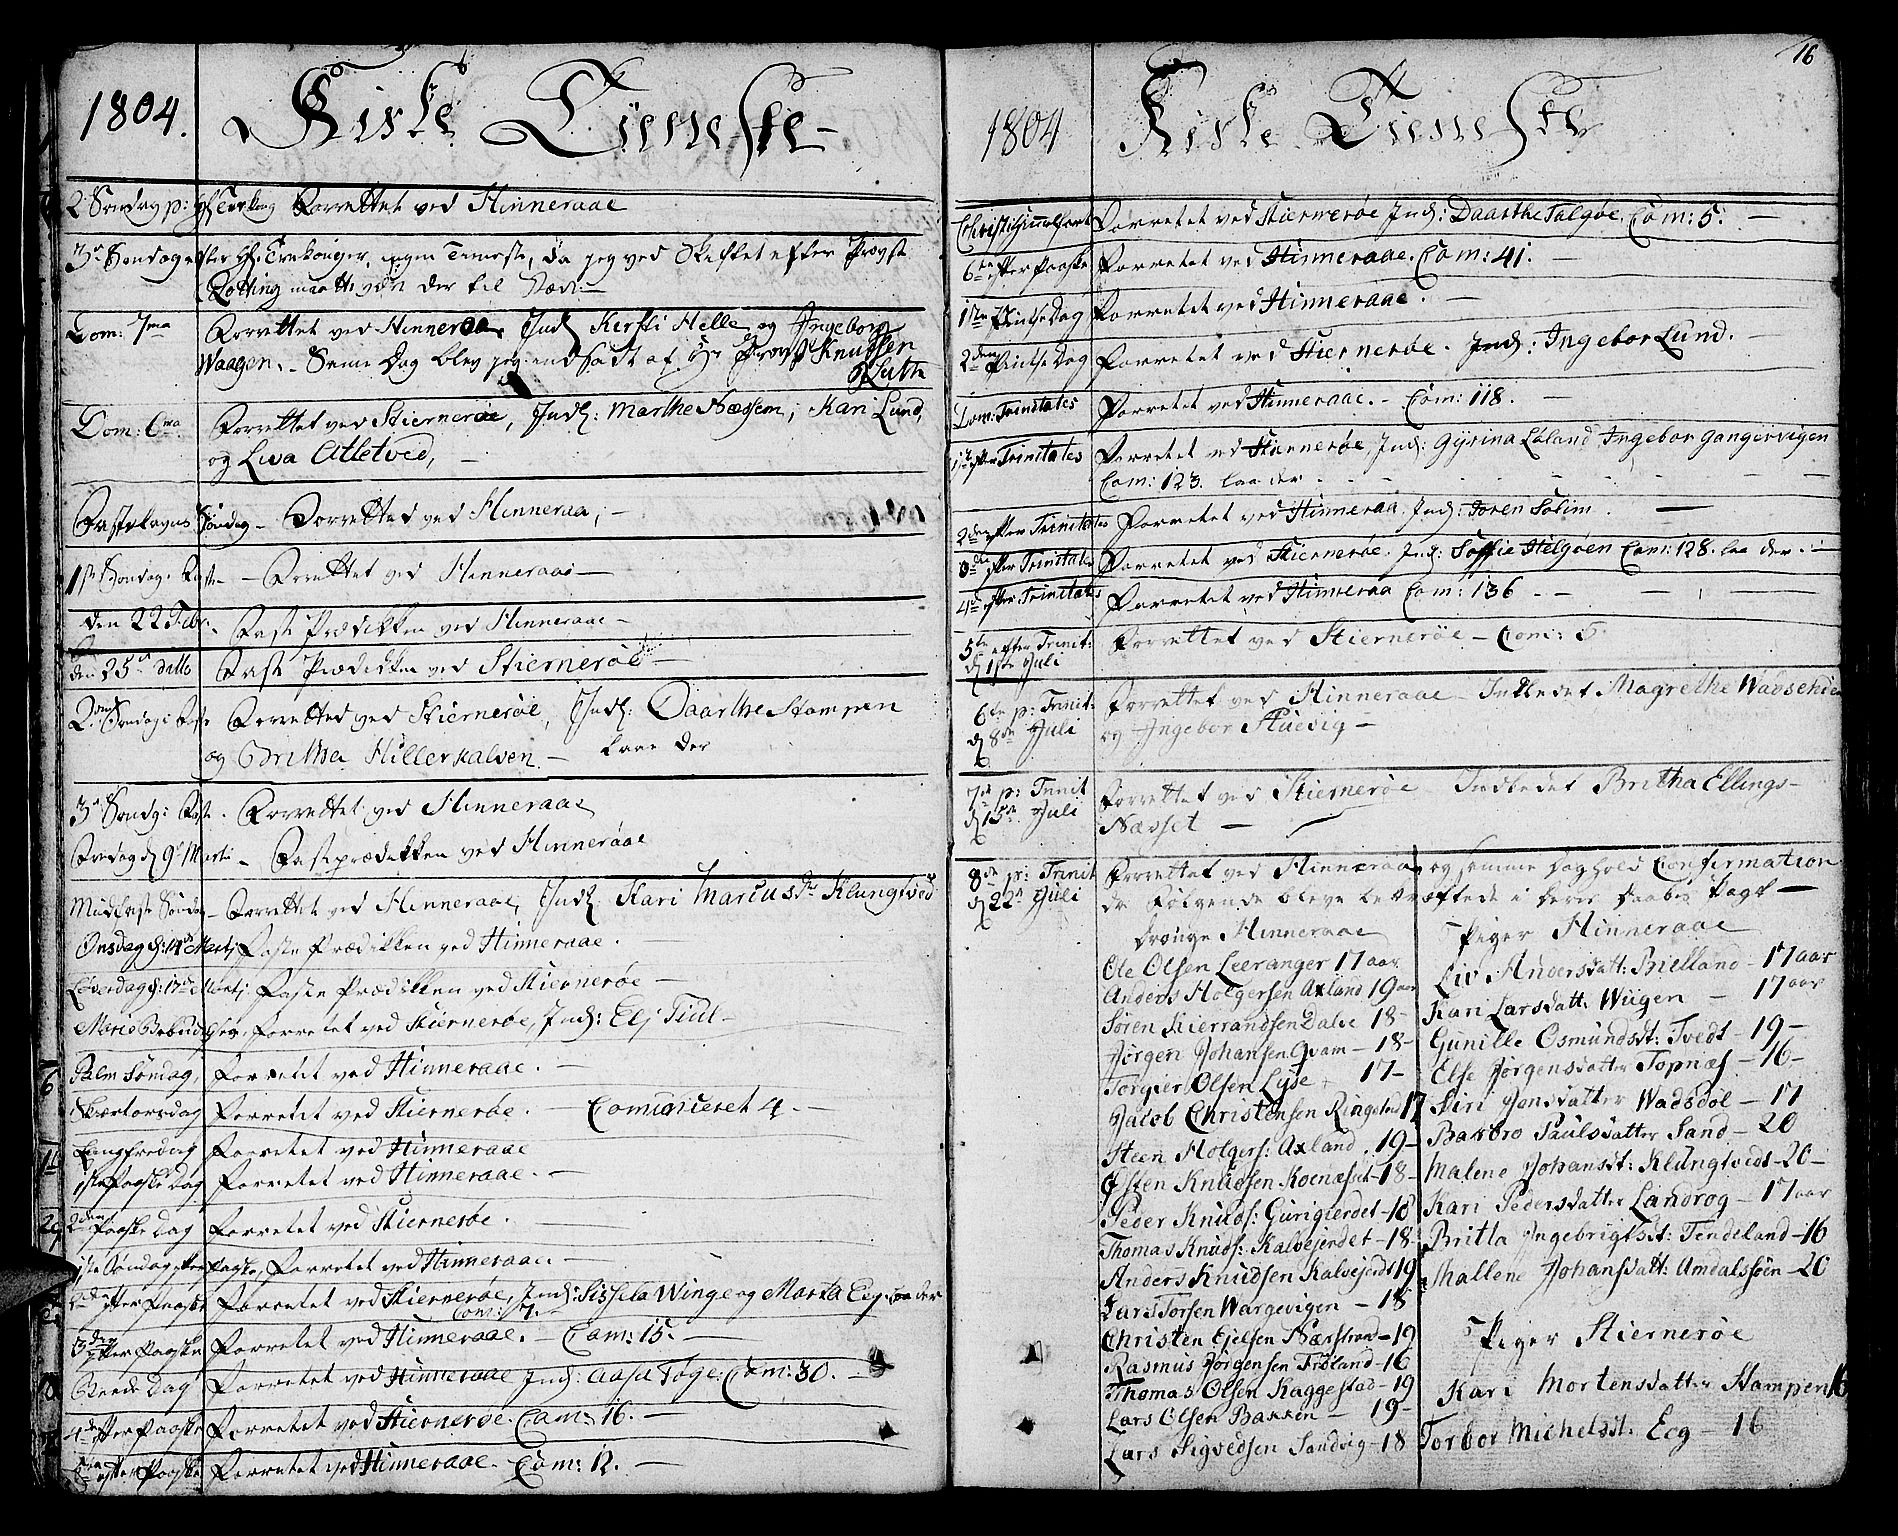 1804. Kirke Tieneste
2 Søndag p: Forrettet ved Hinneraae
3die Søndag efter ingen Tieneste, da jeg ved Skiftet efter Provst
maatte være der til Stæde
Dom: 7ma Forrettet ved Hinneraae, Indl: Kirsti Helle og Ingebor
Waagen. Samme Dag blev jeg indsadt af Hr Provst Knudsen
Dom: 6ma Forrettet ved Stiernerøe, Indl: Marthe Næssem, Kari Lund,
og Liva Atletved,
Fastelavns Søndag – Forrettet ved Hinneraa, –
1ste Søndag i Faste – Forrettet ved Hinneraae –
den 22 Febr. Faste Prædikken ved Hinneraae –
den 25de ditto Faste Prædikken ved Stiernerøe –
2den Søndag i Faste Forrettet ved Stiernerøe, Indl: Daarthe Stampen
og Britha Hillerkalven – laae der
3die Sønd: i Faste. Forrettet ved Hinneraae
Fredag d 9de Marti – Fasteprædikken ved Hinneraae
Midfaste Søndag – Forrettet ved Hinneraae, Indl: Kari Marcusdr Klungtvedt
Onsdag d: 14de Martj Faste Prædikken ved Hinneraae. –
Løverdag d: 17de Martj Faste Prædikken ved Stiernerøe –
Mariæ Bebud: forretet ved Stiernerøe, Indl: Elj Tiul –
Palm Søndag, forretet ved Hinneraae. –
Skiertorsdag forretet ved Stiernerøe. – Comuniceret 4. –
Langfredag forretet ved Hinneraae
1ste Paaske Dag forretet ved Hinneraae. –
2den Paaske Dag forretet ved Stiernerøe. –
1ste Søndag efter Paaske, forretet ved Hinneraae. –
2den efter Paaske forretet ved Stiernerøe, Indl: Sissela Winge og Marta Eeg, laa der
Com: 7. –
3den efter Paaske forretet ved Hinneraae. – Com: 15. –
Beede Dag forretet ved Hinneraae Indl: Aasa Toge: Com: 30. –
4de efter Paaske forretet ved Stiernerøe. Com: 16. –
5te efter Paaske forretet ved Hinneraae. Com: 12. –
16
1804 Kirke Tieneste
Christi Himmelfart forretet ved Stiernerøe Indl: Daarthe Talgøe, Com: 5. –
6te efter Paaske forretet ved Hinneraae. Com: 41. –
1ste Pintse Dag forretet ved Hinneraae. –
2den Pintse Dag forretet ved Stiernerøe. Indl: Ingebor Lund. –
Dom: Trinitates forretet ved Hinneraae. – Com: 118. –
1ste efter Trinitates forretet ved Stiernerøe, Indl: Gyrina Løland, Ingebor Gangervigen
Com: 123. laa der
2den efter Trinitates forretet ved Hinneraa. Indl: Joren Solim. –
3die efter Trinitates forretet ved Stiernerøe. Indl: Soffie Helgøen Com: 128. laa der. –
4de efter Trinitates forretet ved Hinneraa Com: 136 – –
5te efter Trinit: Forrettet ved Stiernerøe – Com: 5.
d 1ste Juli
6te p: Trinit: Forrettet ved Hinneraae – Indledet Magrethe Wadsehei
d 8de Juli og Ingebor Stuevig –
7de p: Trinit Forrettet ved Stiernerøe – Indledet Britha Ellings-
d 15de Juli Næsset –
8de p: Trinit Forrettet ved Hinneraae og samme Dag hold Confirmation
d 22de Juli da Følgende bleve bekræftede i deres Daabes Pagt –
Drenge Hinneraae
Ole Olsen Leeranger 17 aar
Anders Holgersen Axland 19 aar
Søren Kierrandsen Dalve 18 –
Jørgen Johansen Qvam – 18 –
Torgier Olsen Lyse 17 –
Jacob Christensen Ringstad 17
Steen Holgers: Axland. 19 –
Østen Knudsen Koenæset – 18 –
Peder Knuds: Gurigierdet – 18
Thomas Knuds: Kalvejerdet – 18
Anders Knudsen Kalvejerdt 19
Lars Torsen Wargevigen – 18
Christen Ejelsen Nærstrand – 19
Rasmus Jørgensen Frøland – 16
Thomas Olsen Kaggestad – 19
Lars Olsen Bakken – 19 –
Lars Sigvedsen Sandvig – 18
Piger Hinneraae
Liv Andersdatt: Bielland – 17 aar
Kari Larsdatt: Wiigen – 17 aar
Gunille Osmundsdt: Tvedt – 19 –
Else Jørgensdatter Topnæs – 16 –
Siri Jonsdatter Wadsdøl – 17
Barbro Paulsdatter Sand – 20
Malene Johansdt: Klungtvedt – 20 –
Kari Pedersdatter Landrog – 17 aar
Britta Ingebrigtsdt: Tendeland – 16
Mallene Johansdatt: Amdalssøen – 20
Piger Stiernerøe
Kari Mortensdatter Stampen 16
Torbor Michelsdt. Eeg – 16